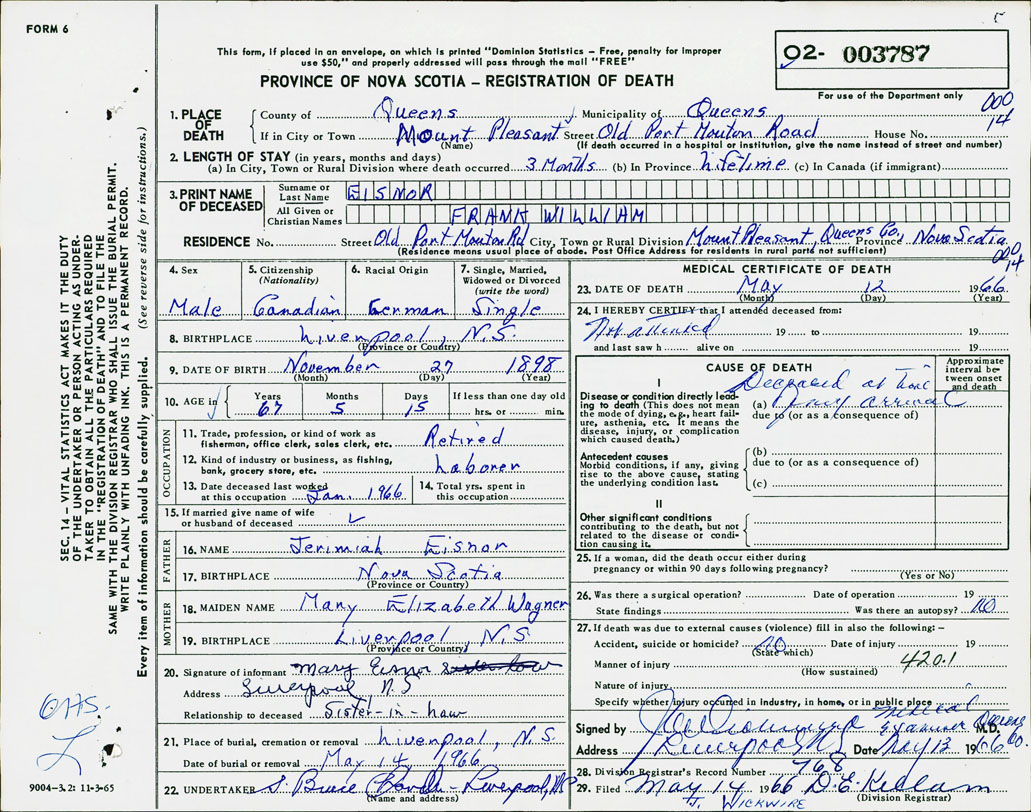 FORM 6
5
This form, if placed in an envelope, on which is printed "Dominion Statistics – Free, penalty for improper
use $50," and properly addressed will pass through the mail "FREE"
PROVINCE OF NOVA SCOTIA – REGISTRATION OF DEATH
02- 003787
For use of the Department only
000
14
1. PLACE OF DEATH
County of Queens Municipality of Queens
If in City or Town Mount Pleasant Street Old Port Mouton Road House No.
(Name) (If death occurred in a hospital or institution, give the name instead of street and number)
2. LENGTH OF STAY (in years, months and days)
(a) In City, Town or Rural Division where death occurred 3 Months (b) In Province Lifetime (c) In Canada (if immigrant)
3. PRINT NAME OF DECEASED
Surname or Last Name EISNOR
All Given or Christian Names FRANK WILLIAM
RESIDENCE No. Street Old Port Mouton Rd City, Town or Rural Division Mount Pleasant, Queens Co., Province Nova Scotia
(Residence means usual place of abode. Post Office Address for residents in rural parts not sufficient)
000
14
4. Sex
Male
5. Citizenship
(Nationality)
Canadian
6. Racial Origin
German
7. Single, Married,
Widowed or Divorced
(write the word)
Single
8. BIRTHPLACE Liverpool, N.S.
(Province or Country)
9. DATE OF BIRTH November 27 1898
(Month) (Day) (Year)
10. AGE in
Years Months Days If less than one day old
67 5 15 hrs. or min.
OCCUPATION
11. Trade, profession, or kind of work as
fisherman, office clerk, sales clerk, etc. Retired
12. Kind of industry or business, as fishing,
bank, grocery store, etc. Laborer
13. Date deceased last worked
at this occupation Jan. 1966
14. Total yrs. spent in
this occupation
15. If married give name of wife
or husband of deceased
FATHER
16. NAME Jerimiah Eisnor
17. BIRTHPLACE Nova Scotia
(Province or Country)
MOTHER
18. MAIDEN NAME Mary Elizabeth Wagner
19. BIRTHPLACE Liverpool, N.S
(Province or Country)
20. Signature of informant Mary Eisnor
Address Liverpool N.S
Relationship to deceased Sister-in-Law
21. Place of burial, cremation or removal Liverpool, N.S.
Date of burial or removal May 14 1966
22. UNDERTAKER S. Bruce Liverpool, NS
(Name and address)
MEDICAL CERTIFICATE OF DEATH
23. DATE OF DEATH May 12 1966
(Month) (Day) (Year)
24. I HEREBY CERTIFY that I attended deceased from:
Not attended 19 to 19
and last saw h alive on 19
CAUSE OF DEATH
Approximate interval between onset and death
I
Disease or condition directly leading to death (This does not mean the mode of dying, e.g., heart failure, asthenia, etc. It means the disease, injury, or complication which caused death.)
(a) Deceased at time of my arrival
due to (or as a consequence of)
Antecedent causes
Morbid conditions, if any, giving rise to the above cause, stating the underlying condition last.
(b)
due to (or as a consequence of)
(c)
II
Other significant conditions
contributing to the death, but not related to the disease or condition causing it.
25. If a woman, did the death occur either during
pregnancy or within 90 days following pregnancy?
(Yes or No)
26. Was there a surgical operation? Date of operation 19
State findings Was there an autopsy? no
27. If death was due to external causes (violence) fill in also the following:–
Accident, suicide or homicide? no Date of injury 19
(State which)
Manner of injury 420.1
(How sustained)
Nature of injury
Specify whether injury occurred in Industry, in home, or in public place
Signed by Medical Examiner Queens Co. M.D.
Address Liverpool NS Date May 13 1966
28. Division Registrar's Record Number 768
29. Filed May 14 1966 D.E. Kellam
(Division Registrar)
WICKWIRE
SEC. 14 – VITAL STATISTICS ACT MAKES IT THE DUTY
OF THE UNDERTAKER OR PERSON ACTING AS UNDER-
TAKER TO OBTAIN ALL THE PARTICULARS REQUIRED
IN THE "REGISTRATION OF DEATH" AND TO FILE THE
SAME WITH THE DIVISION REGISTRAR WHO SHALL ISSUE THE BURIAL PERMIT.
WRITE PLAINLY WITH UNFADING INK. THIS IS A PERMANENT RECORD.
Every item of information should be carefully supplied. (See reverse side for instructions.)
9004-3.2: 11-3-65